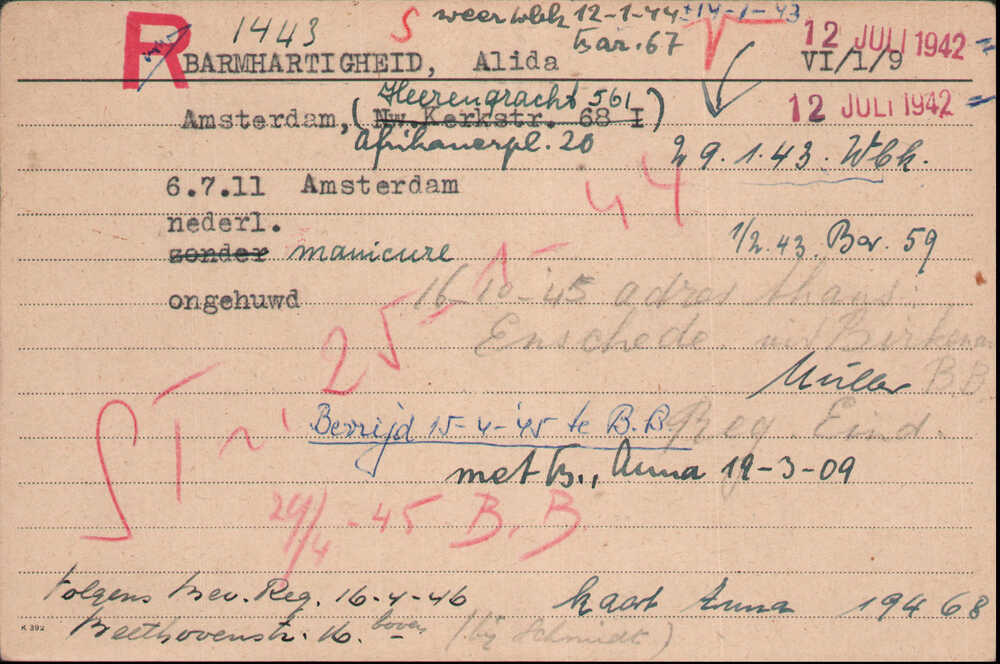 R 1443 S weer wbk 12-1-44 ± 14-1-43
bar. 67 12 JULI 1942
BARMHARTIGHEID, Alida VI/1/9
Heerengracht 561 12 JULI 1942
Amsterdam, (Nw. Kerkstr. 68 I)
Afrikanerpl. 20 29.1.43. Wbk.
6.7.11 Amsterdam 44
nederl.
1/2.43. Bar. 59
zonder manicure
16-10-45 adres thans
ongehuwd
Enschede uit Birkenau
25-1-
Müller B.B.
Bevrijd 15-4-'45 te B.B. Reg Eind.
met B., Anna 19-3-09
29/4-45 B.B.
Volgens Bev. Reg. 16-4-46 kaart Anna 19468
Beethovenstr. 16. boven (bij Schmidt)
K 392